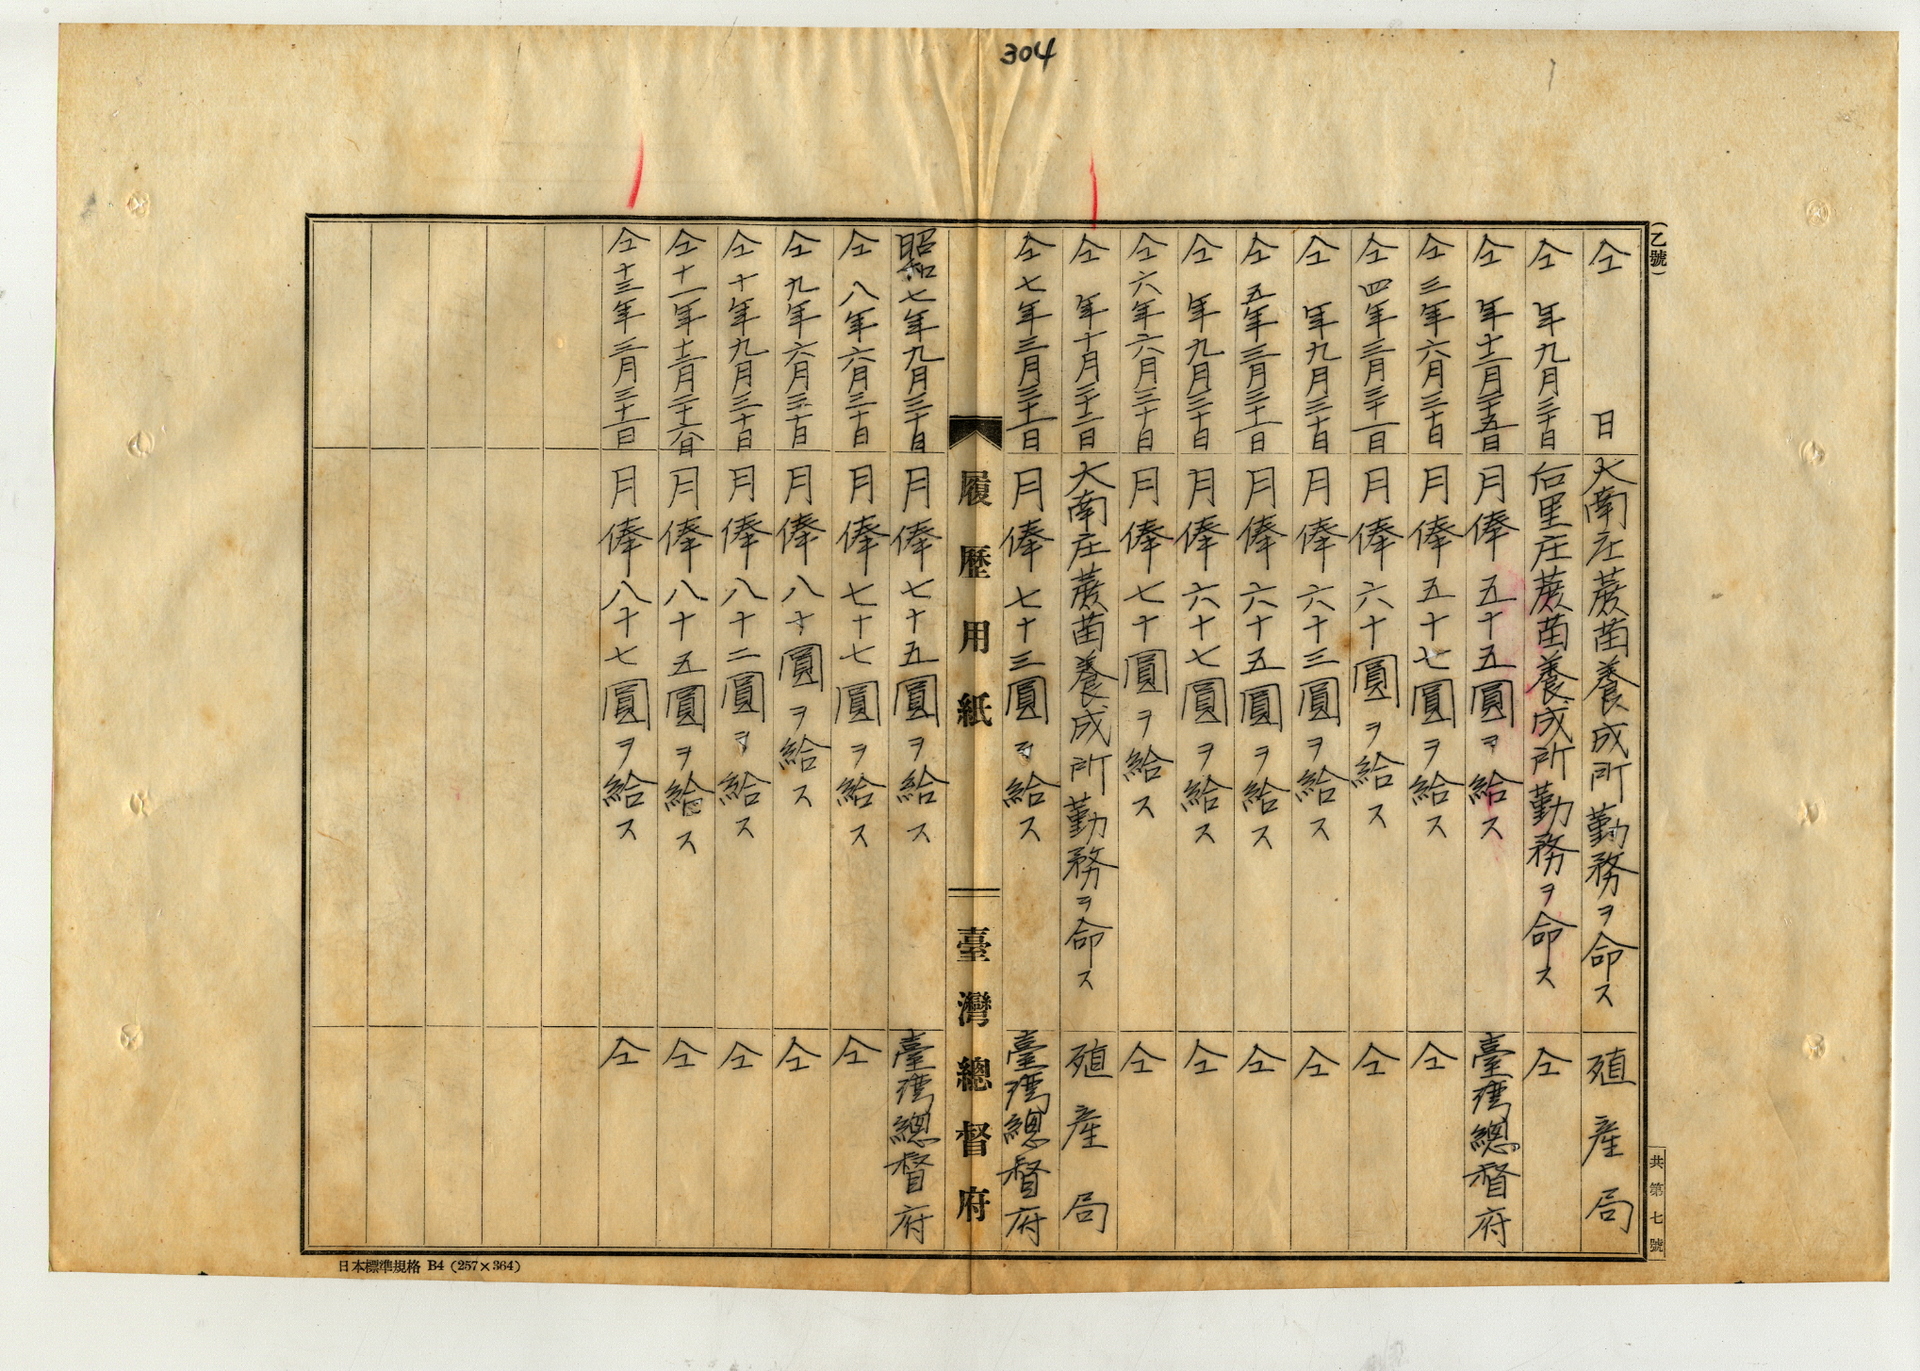 304
(乙號)
仝　　日　大南庄蔗苗養成所勤務ヲ命ス　殖産局
仝　年九月三十日　后里庄蔗苗養成所勤務ヲ命ス　仝
仝　年十二月二十五日　月俸五十五圓ヲ給ス　臺灣總督府
仝三年六月三十日　月俸五十七圓ヲ給ス　仝
仝四年三月三十一日　月俸六十圓ヲ給ス　仝
仝　年九月三十日　月俸六十三圓ヲ給ス　仝
仝五年三月三十一日　月俸六十五圓ヲ給ス　仝
仝　年九月三十日　月俸六十七圓ヲ給ス　仝
仝六年六月三十日　月俸七十圓ヲ給ス　仝
仝　年十月二十二日　大南庄蔗苗養成所勤務ヲ命ス　殖産局
仝七年三月三十一日　月俸七十三圓ヲ給ス　臺灣總督府
履歷用紙　臺灣總督府
昭和七年九月三十日　月俸七十五圓ヲ給ス　臺灣總督府
仝八年六月三十日　月俸七十七圓ヲ給ス　仝
仝九年六月三十日　月俸八十圓ヲ給ス　仝
仝十年九月三十日　月俸八十二圓ヲ給ス　仝
仝十一年十二月二十六日　月俸八十五圓ヲ給ス　仝
仝十三年三月三十一日　月俸八十七圓ヲ給ス　仝
共第七號
日本標準規格 B4 (257×364)